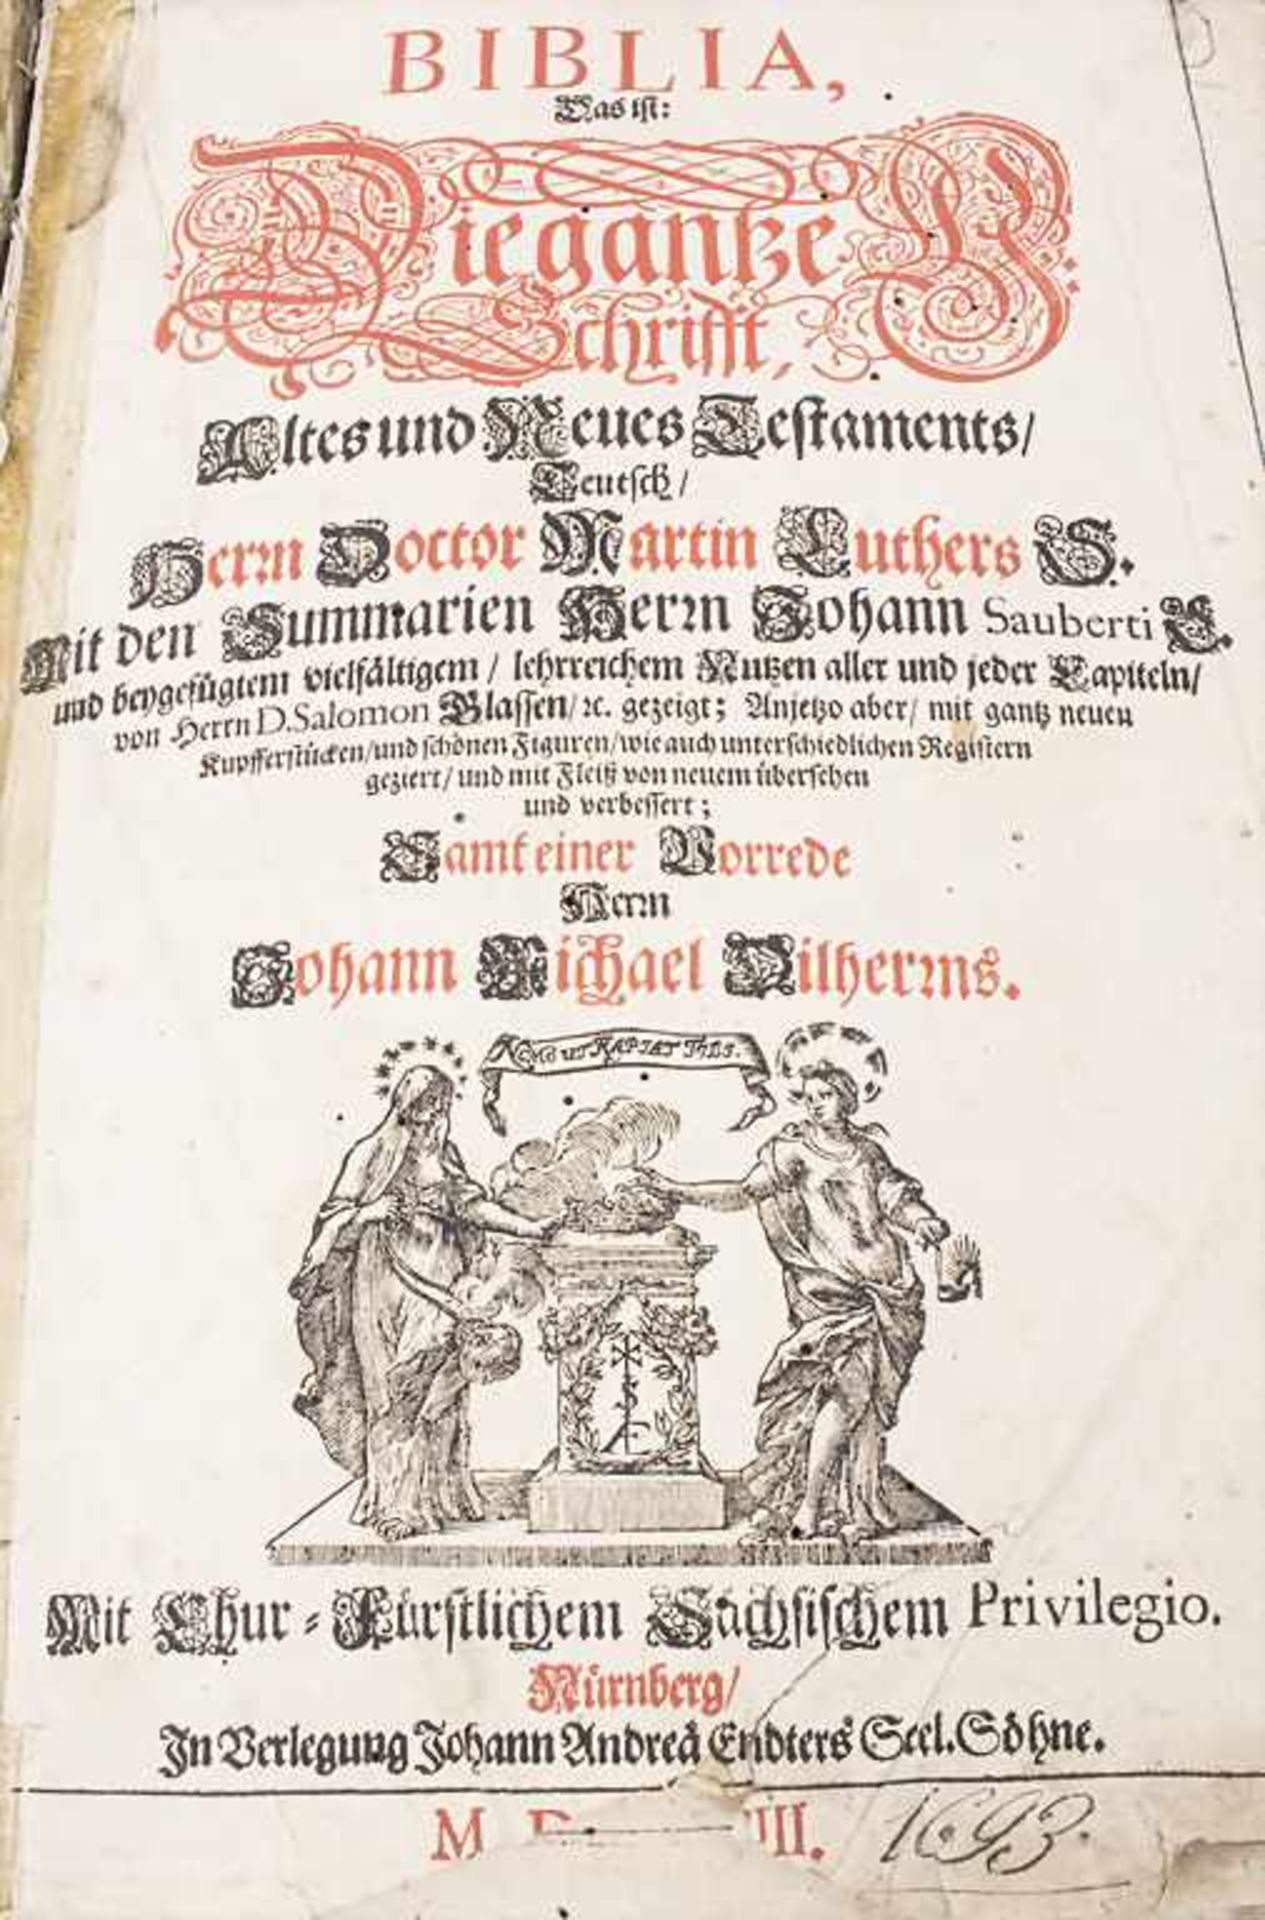 BIBLIA,
Das ist:
Die gantze H.
Schrifft,
Altes und Neues Testaments/
Teutsch/
Herrn Doctor Martin Luthers S.
Mit den Summarien Herrn Johann Sauberti S.
und beygefügtem vielfältigem/ lehrreichem Nutzen aller und jeder Capiteln/
von Herrn D. Salomon Glassen/ ꝛc. gezeigt; Anjetzo aber/ mit gantz neuen
Kupfferstücken/ und schönen Figuren/ wie auch unterschiedlichen Registern
geziert/ und mit Fleiß von neuem übersehen
und verbessert;
Samt einer Vorrede
Herrn
Johann Michael Dilherrns.
NEMO UT RAPIAT
Mit Chur-Fürstlichem Sächsischem Privilegio.
Nürnberg/
In Verlegung Johann Andreä Endters Seel. Söhne.
M III. 1693.